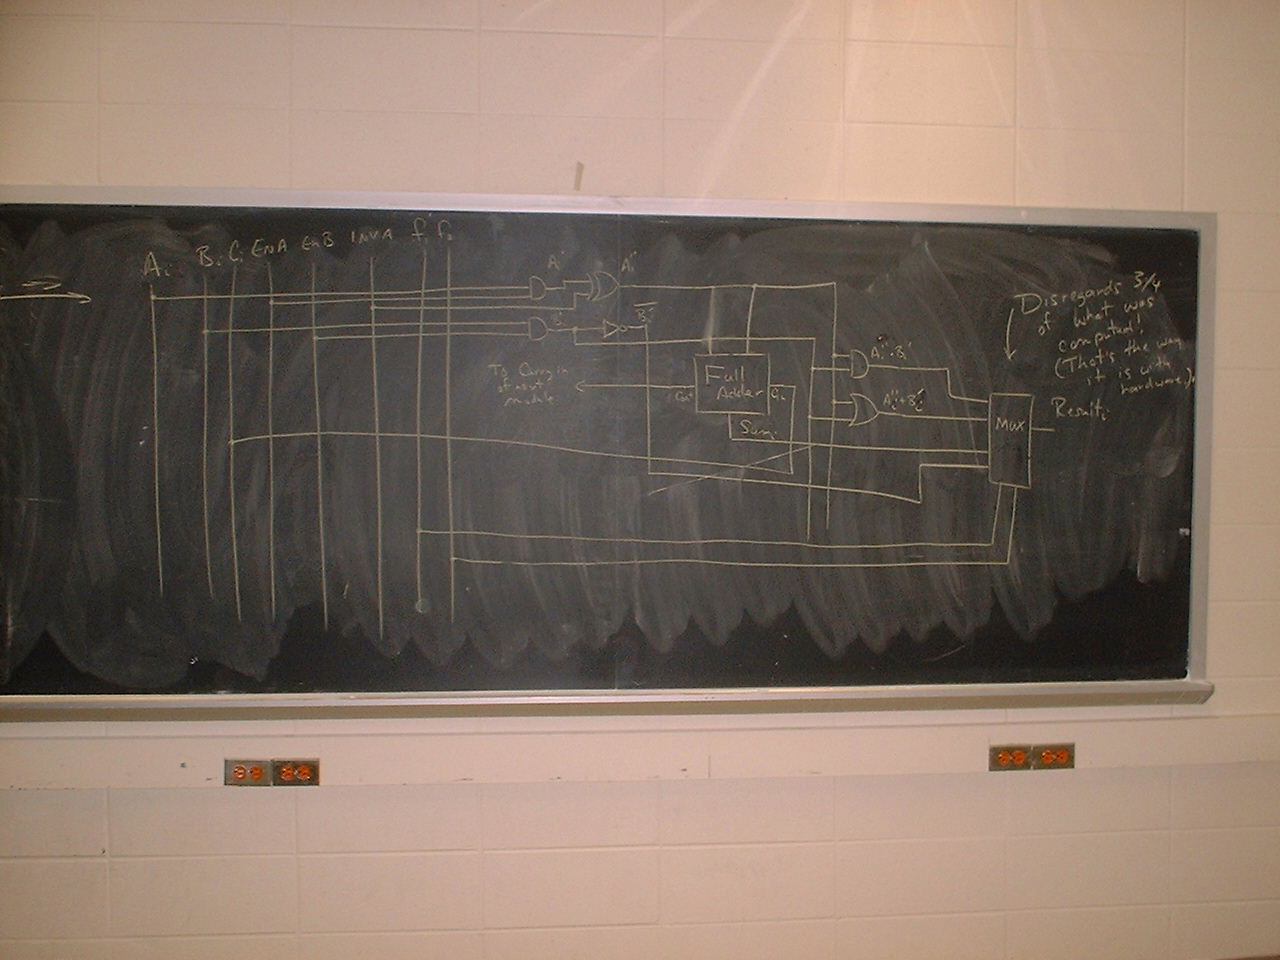 Ai Bi Ci ENA EnB INVA f1 f2
Ai' Ai''
Bi' Bi'
To Carry in
of next
module
Full
Adder
Cout Cin
Sum
Ai''·Bi'
Ai''+Bi'
Mux
Resulti
Disregards 3/4
of what was
computed!
(That's the way
it is with
hardware.)